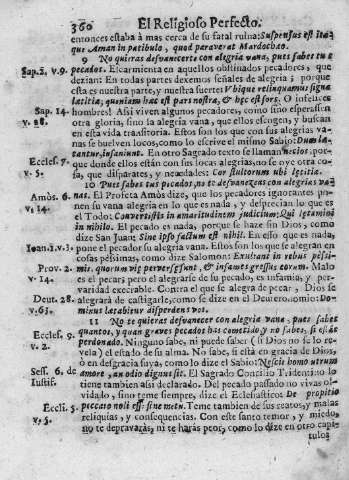 360 El Religioso Perfecto.
entonces estaba à mas cerca de su fatal ruina: Suspensus est ita-
que Aman in patibulo, quod paraverat Mardocheo.
9 No quieras desvanecerte con alegria vana, pues sabes tu
Sap. 2, v. 9. pecador. Escarmienta en aquellos obstinados pecadores, que
dezian: En todas partes dexemos señales de alegria; porque
esta es nuestra parte, y nuestra suerte: Vbique relinquamus signa
lætitiæ, quoniam hæc est pars nostra, & hæc est sors. O infelices
Sap. 14. hombres! Assi viven algunos pecadores, como sino esperassen
v. 28. otra gloria, sino la alegria vana, que ellos escogen, y buscan
en esta vida transitoria. Estos son los que con sus alegrias va-
nas se buelven locos, como lo escrive el mismo Sabio: Dum læ-
tantur, insaniunt. En otro Sagrado texto se llaman necios, por-
Eccles. 7. que donde ellos están con sus locas alegrias, no se oye otra co-
v. 5. sa, que disparates, y necedades: Cor stultorum ubi lætitia.
10 Pues sabes tus pecados, no te desvanezcas con alegrias va-
Amòs. 6. nas. El Profeta Amòs dize, que los pecadores ignorantes po-
v. 14. nen su vana alegria en lo que es nada, y desprecian lo que es
el Todo: Convertistis in amaritudinem judicium: Qui lætamini
in nihilo. El pecado es nada, porque se haze sin Dios, como
dize San Juan: Sine ipso factum est nihil. En esso que es nada,
Ioan. 1. v. 3. pone el pecador su alegria vana. Estos son los que se alegran en
cosas pèssimas, como dize Salomon: Exultant in rebus pessi-
Prov. 2. mis, quorum viæ perversæ sunt, & infames gressus eorum. Malo
es el pecar; pero el alegrarse de su pecado, es infamia, y per-
versidad execrable. Contra el que se alegra de pecar, Dios se
Deut. 28. alegrarà de castigarle, como se dize en el Deuteronomio: Do-
v. 63. minus lætabitur disperdens vos.
11 No te quieras desvanecer con alegria vana, pues sabes
Eccles. 9. quantos, y quan graves pecados has cometido y no sabes, si estàs
v. 2. perdonado. Ninguno sabe, ni puede saber (si Dios no se lo re-
vela) el estado de su alma. No sabe, si està en gracia de Dios,
ò en desgracia suya, como lo dize el Sabio: Nescit homo utrum
Sess. 6. de amore, an odio dignus sit. El Sagrado Concilio Tridentino lo
Iustif. tiene tambien assi declarado. Del pecado passado no vivas ol-
vidado, sino teme siempre, dize el Eclesiastico: De propitio
Eccli. 5. peccato noli esse sine metu. Teme tambien de sus reatos, y malas
v. 5. reliquias, y consequencias. Con este santo temor, y miedo,
no te depravaràs, ni te haràs peor, como lo dize en otro capi-
tulos